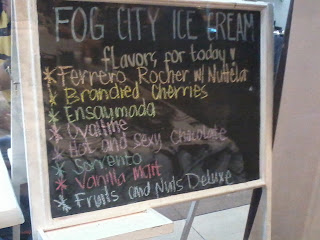 FOG CITY ICE CREAM
flavors for today ♥
* Ferrero Rocher w/ Nutella
* Brandied Cherries
* Ensaymada
* Ovaltine
* Hot and Sexy Chocolate
* Sorrento
* Vanilla Malt
* Fruits and Nuts Deluxe